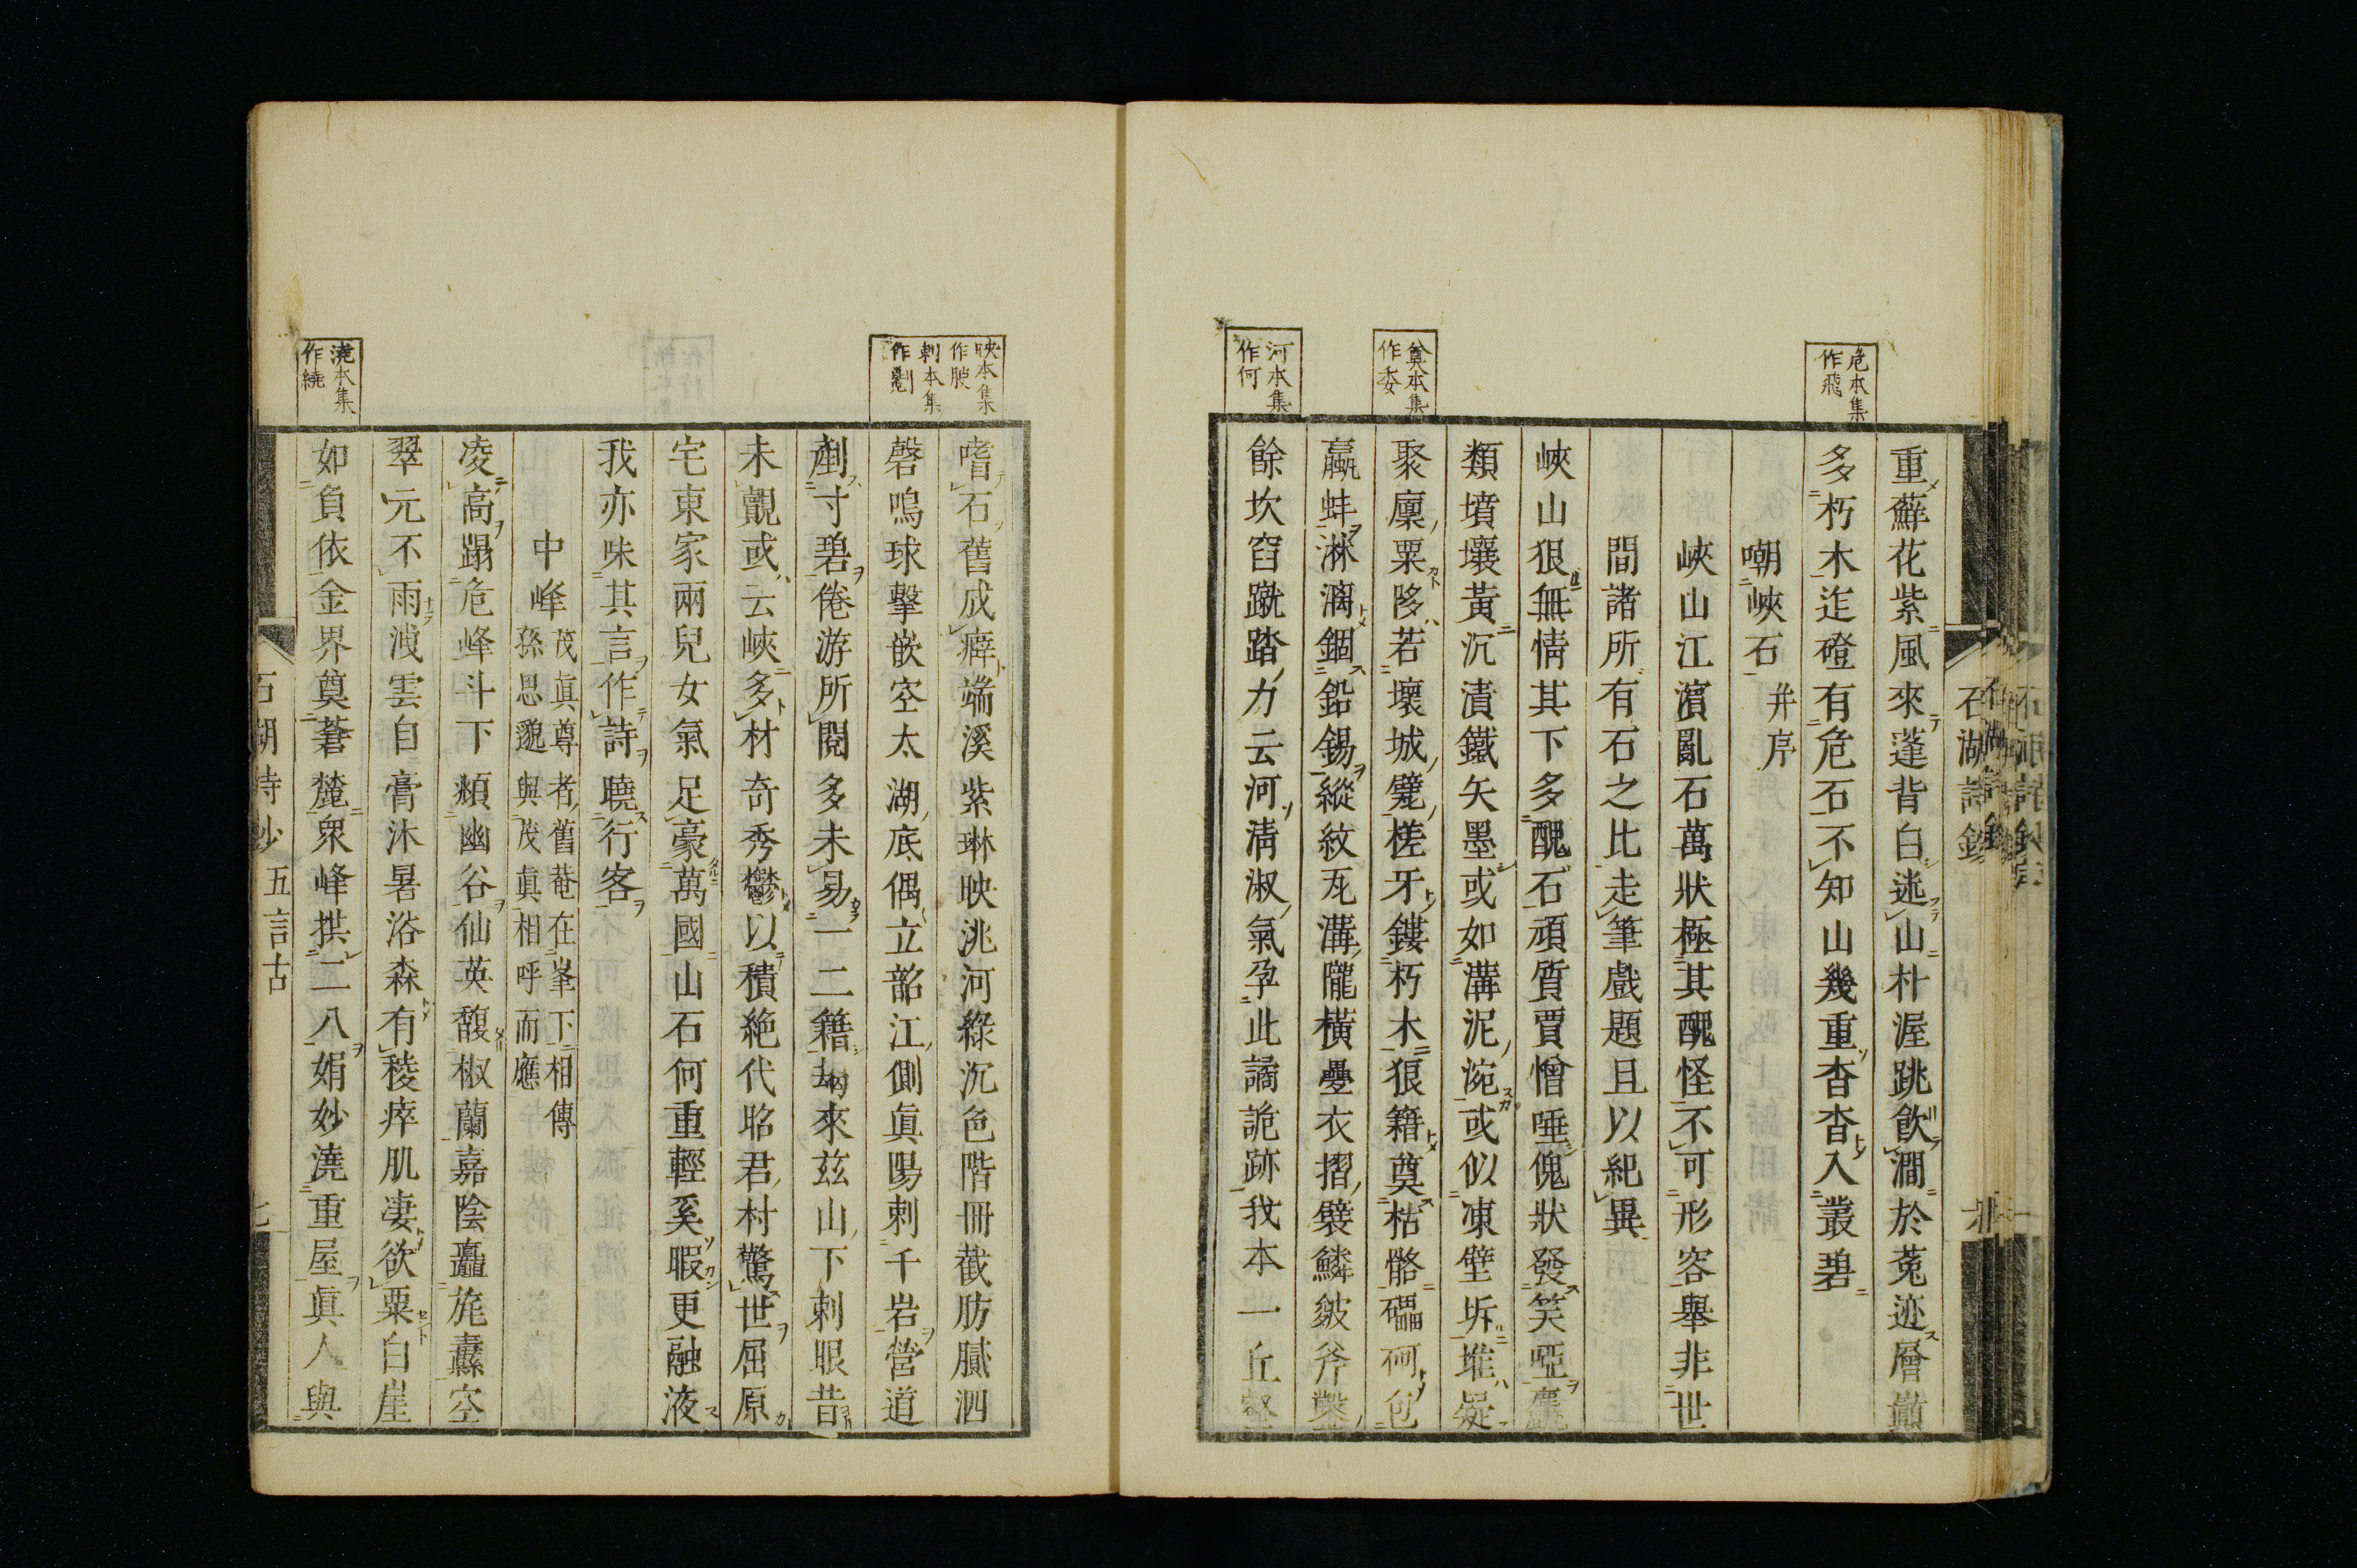 危本集
作飛
奠本集
作委
河本集
作何
重蘚花紫風來蓬背白逃山朴渥跳飲澗於菟迹層巔
多朽木迮磴有危石不知山幾重杳杳入叢碧
嘲峽石 并序
峽山江濱亂石萬狀極其醜怪不可形容舉非世
間諸所有石之比走筆戲題且以紀異
峽山狠無情其下多醜石頑質賈憎唾傀狀發笑啞麤
類墳壤黃沉漬鐵矢墨或如溝泥涴或似凍壁坼堆疑
聚廩粟陊若壞城甓槎牙鏤朽木狼籍奠枯骼礧砢包
蠃蚌淋漓錮鉛錫縱紋瓦溝隴橫疊衣摺襞鱗皴斧鑿
餘坎窞蹴踏力云河淸淑氣孕此譎詭跡我本一丘壑
映本集
作腴
刺本集
作劃
澆本集
作繞
嗜石舊成癖端溪紫琳映洮河綠沉色階冊截肪膩泗
磬鳴球擊嵌空太湖底偶立韶江側眞陽刺千岩營道
劃寸碧倦游所閱多未易一二籍朅來茲山下刺眼昔
未覿或云峽多材奇秀鬱以積絶代昭君村驚世屈原
宅東家兩兒女氣足豪萬國山石何重輕奚暇更融液
我亦味其言作詩曉行客
中峰
茂眞尊者舊菴在峯下相傳
孫思邈與茂眞相呼而應
凌高躡危峰斗下頫幽谷仙英馥椒蘭嘉陰矗旄纛空
翠元不雨濕雲自膏沐暑浴森有稜瘁肌凄欲粟白崖
如負依金界奠蒼麓衆峰拱二八娟妙澆重屋眞人與
石湖詩鈔 五言古